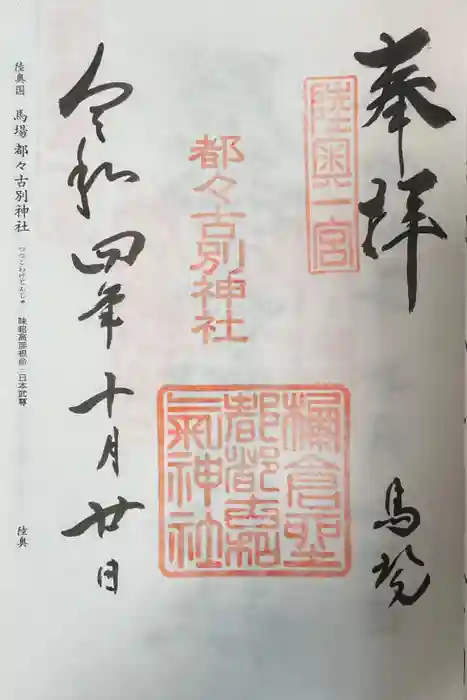 奉拝
馬場
陸奥一宮
都々古別神社
令和四年十月廿日
陸奥国 馬場 都々古別神社 つつこわけじんじゃ 味耜高彦根命・日本武尊
陸奥